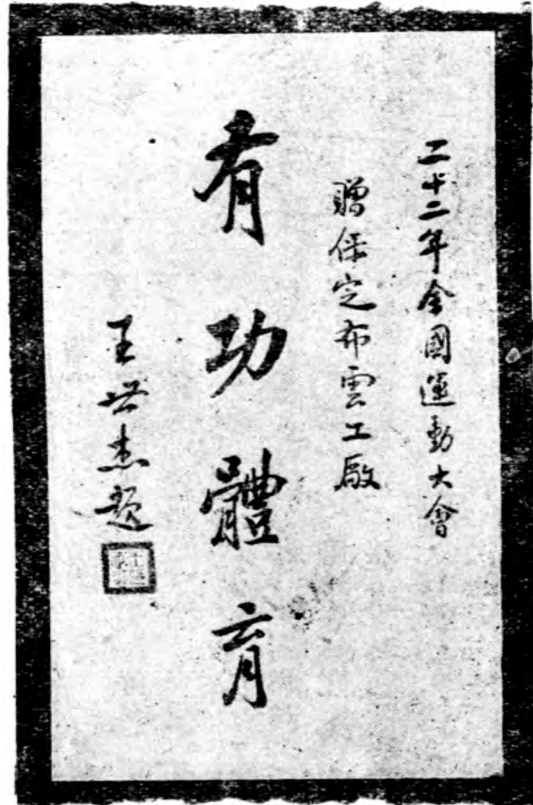 二十二年全國運動大會
贈保定布雲工廠
有功體育
王世杰題